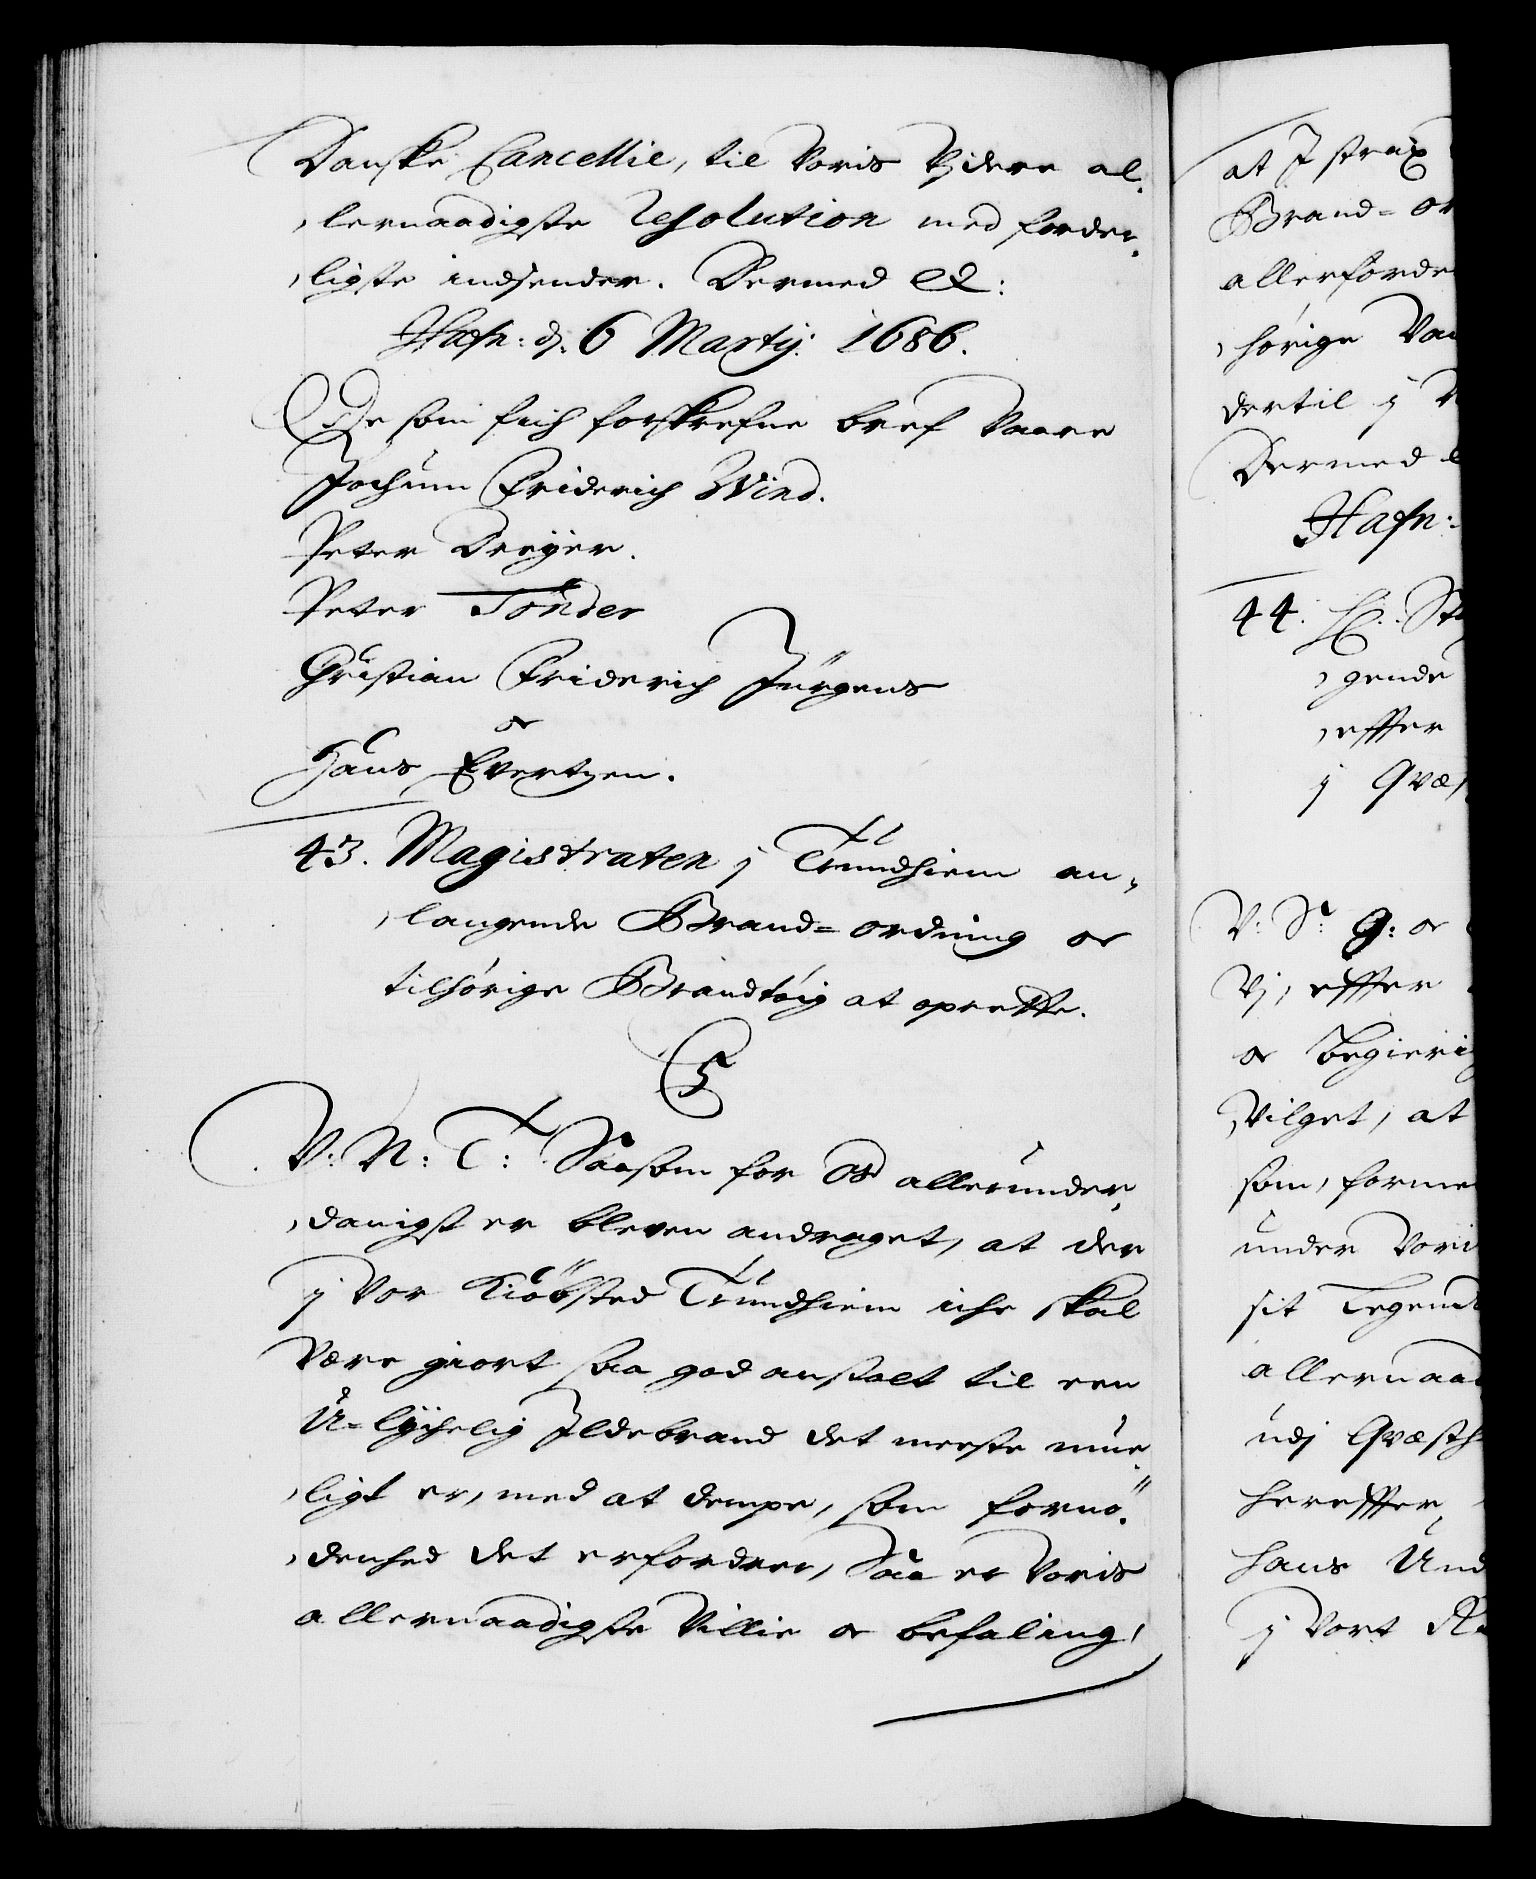 Danske Cancellie, til Voris Videre al,
,lernaadigste Resolution med forder,
,ligste indsender. Dermed &:
Hafn: d. 6 Martij. 1686.
De som fich forskrefne bref Vaare
Jochum Friderich Wind.
Peter Dreyer.
Peter Tønder
Christian Friderich Jürgens
oc
Hans Evertzen.
43. Magistraten j Trundhiem an,
,langende Brand=ordning oc
tilhørige Brandtöig at oprette.
C5
V: N: T: Saasom for Os allerunder,
,danigst er bleven andraget, at der
j Vor Kiöbsted Trundhiem iche skal
Være giort saa god anstalt til een
U=lychelig Ildebrand det meeste mue,
,ligt er, med at dempe, som fornö,
,denhed det erfordrer, Saa er Voris
allernaadigste Villie oc befaling,
at I strax
Brand=or
allerforde
,hørige Va
dertil j
Dermed
Hafn:
44. H. St
,gende
,effter
j Qvæ
V: S: G: oc
Vj, effter
oc begiering
Vilget, at
som, forme
under Vori
sit Segment
allernaad
udj Qvæsth
hereffter,
hans Und
j Vort R